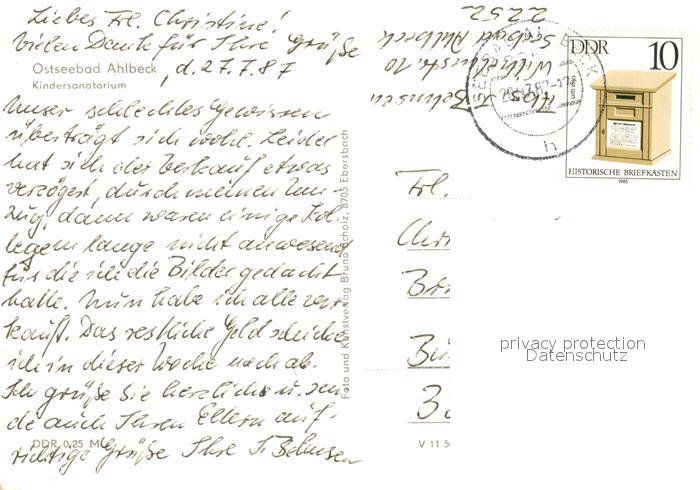 Liebes Frl. Christine!
vielen Dank für Ihre Grüße
Ostseebad Ahlbeck
Kindersanatorium
, d. 27.7.87
Unser schlechtes Gewissen
überträgt sich wohl. Leider
hat sich der Verkauf etwas
verzögert, durch meinen Um-
zug, dann waren einige Kol-
legen lange nicht anwesend
für die ich die Bilder gedacht
hatte. Nun habe ich alle ver-
kauft. Das restliche Geld schicke
ich in dieser Woche noch ab.
Ich grüße Sie herzlich u. sen-
de auch Ihren Eltern auf-
richtige Grüße Ihre
DDR 0,25 M
Foto und Kunstverlag Bruno Scholz, 8705 Ebersbach
V 11 50
2252
Seebad Ahlbeck
DDR
10
HISTORISCHE BRIEFKÄSTEN
1985
um 1900
h
Frl.
Chri
privacy protection
Datenschutz